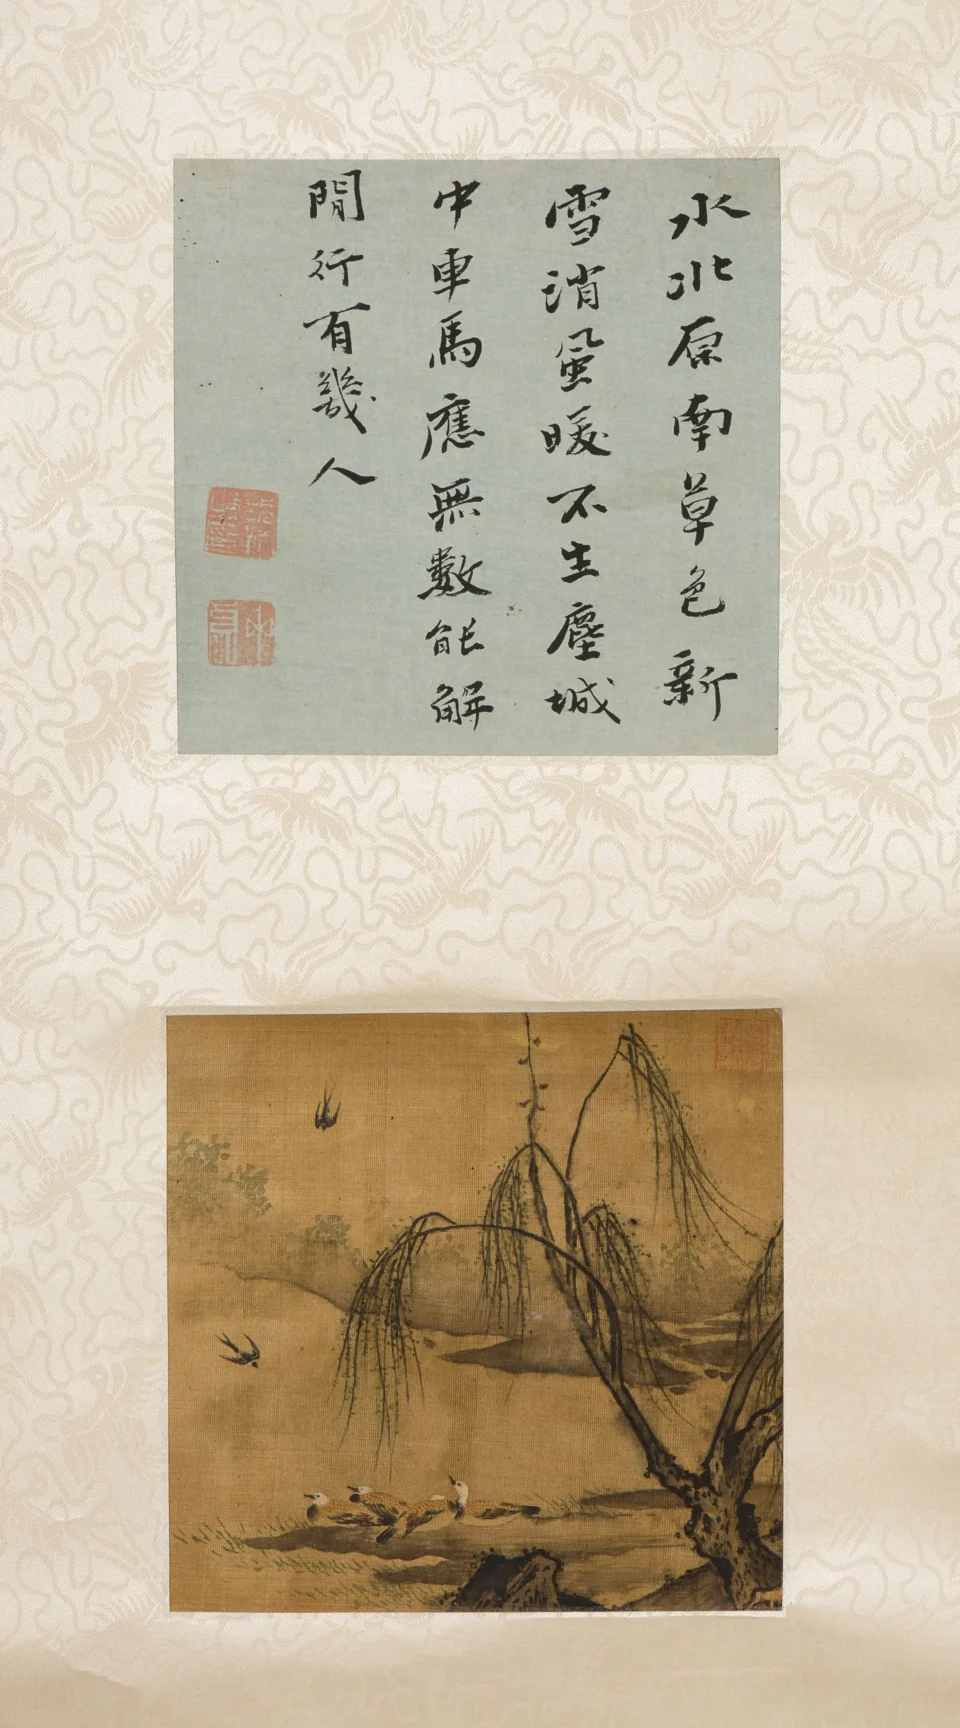 水北原南草色新
雪消風暖不生塵城
中車馬應無數能解
閒行有幾人